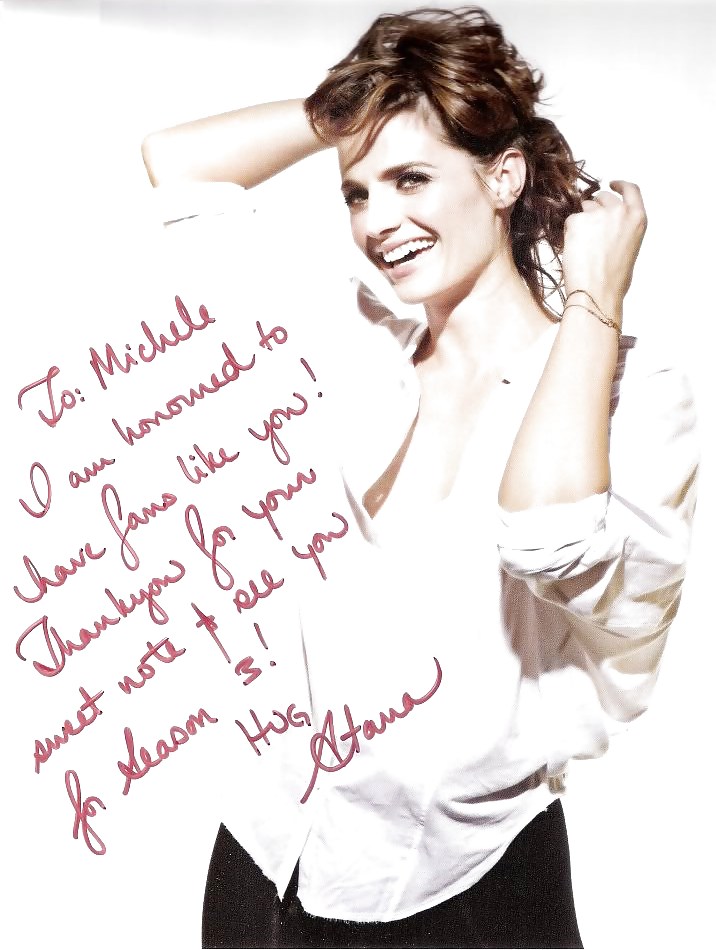 To: Michele
I am honored to
have fans like you!
Thankyou for your
sweet note & see you
for Season 3!
HUG
Stana